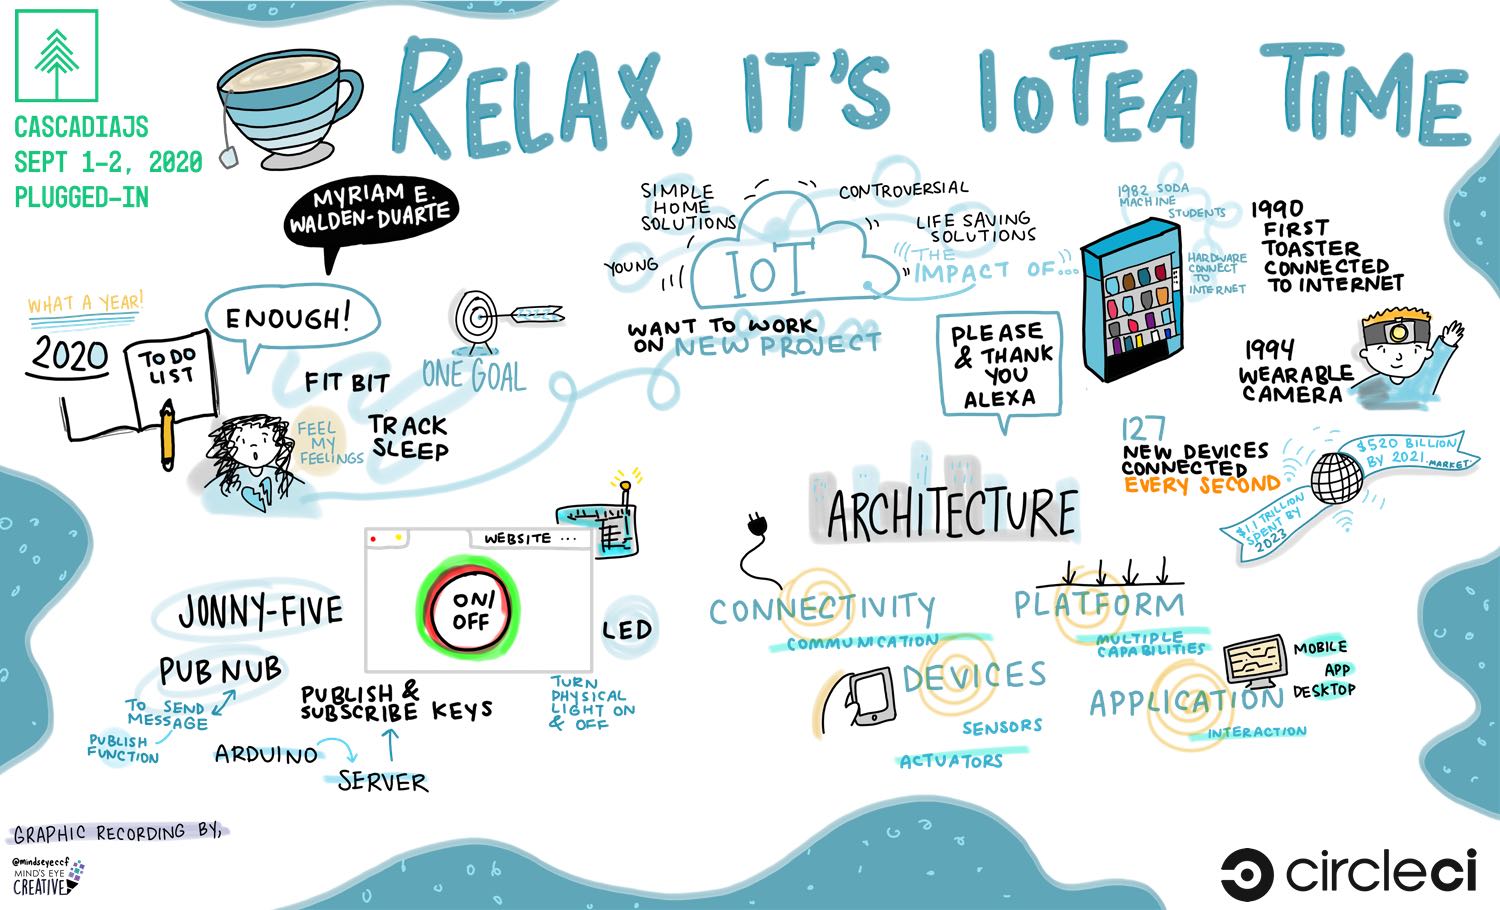 CASCADIAJS
SEPT 1-2, 2020
PLUGGED-IN
RELAX, IT'S IOTEA TIME
MYRIAM E.
WALDEN-DUARTE
WHAT A YEAR!
2020
TO DO
LIST
ENOUGH!
FIT BIT
FEEL
MY
FEELINGS
TRACK
SLEEP
ONE GOAL
SIMPLE
HOME
SOLUTIONS
YOUNG
IOT
CONTROVERSIAL
LIFE SAVING
SOLUTIONS
THE
IMPACT OF...
WANT TO WORK
ON NEW PROJECT
PLEASE
& THANK
YOU
ALEXA
1982 SODA
MACHINE
STUDENTS
HARDWARE
CONNECT
TO
INTERNET
1990
FIRST
TOASTER
CONNECTED
TO INTERNET
1994
WEARABLE
CAMERA
127
NEW DEVICES
CONNECTED
EVERY SECOND
$520 BILLION
BY 2021 MARKET
$1.1 TRILLION
SPENT BY
2023
JONNY-FIVE
PUBNUB
TO SEND
MESSAGE
PUBLISH
FUNCTION
PUBLISH &
SUBSCRIBE KEYS
ARDUINO
SERVER
WEBSITE ...
ON/
OFF
LED
TURN
PHYSICAL
LIGHT ON
& OFF
ARCHITECTURE
CONNECTIVITY
COMMUNICATION
PLATFORM
MULTIPLE
CAPABILITIES
DEVICES
SENSORS
ACTUATORS
APPLICATION
INTERACTION
MOBILE
APP
DESKTOP
GRAPHIC RECORDING BY,
@mindseyeccf
MIND'S EYE
CREATIVE
circleci